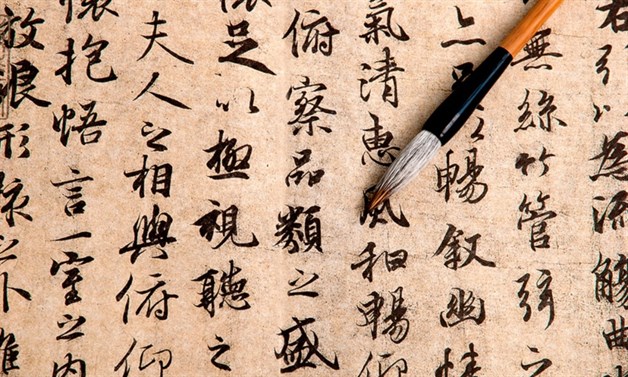 右引以為流觴曲
無絲竹管弦之
亦足以暢叙幽情
氣清惠風和暢仰
俯察品類之盛
懷足以極視聽之
夫人之相與俯仰
懷抱悟言一室之内
放浪形骸之外雖